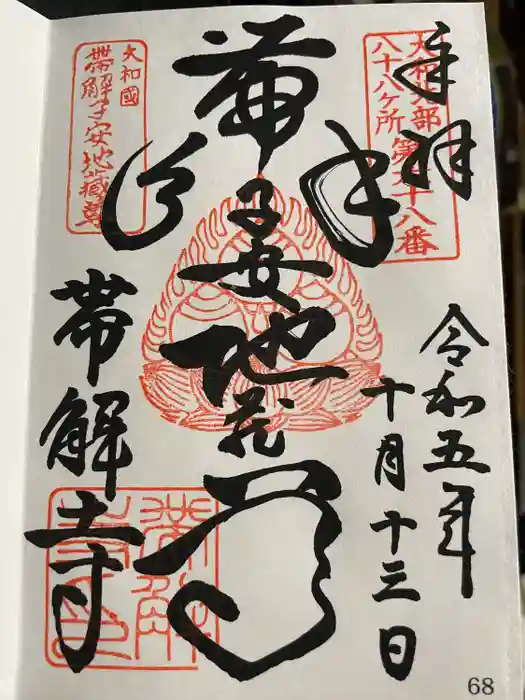 奉拝
大和北部
八十八ヶ所 第六十八番
令和五年
十月十三日
帯解子安地蔵尊
大和國
帯解子安地蔵尊
帯解寺
68